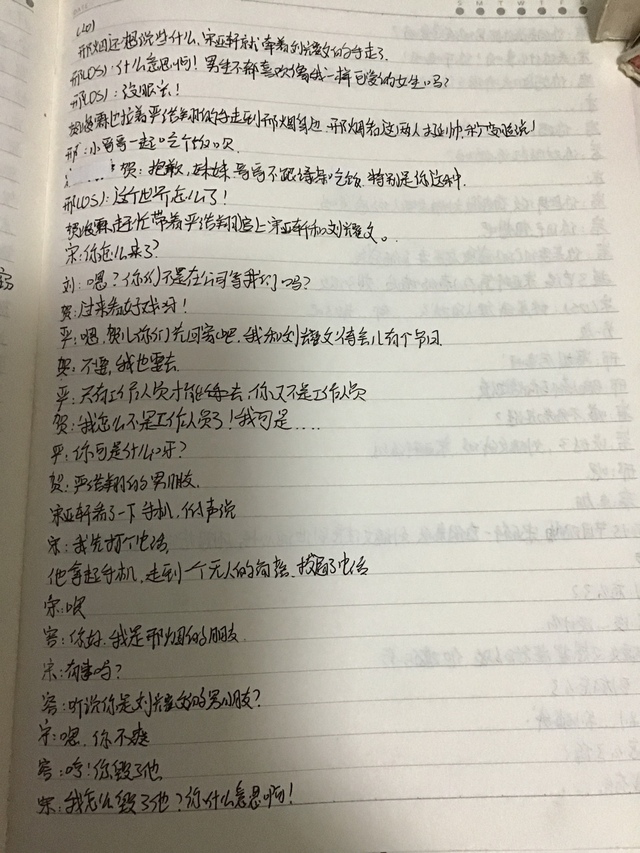 (20)
邢烟还想说些什么,宋亚轩就牵着刘耀文的手走了.
邢(OS):什么意思啊!男生不都喜欢像我一样可爱的女生吗?
邢(OS):没眼光!
贺峻霖也拉着严浩翔的手走到邢烟身边.邢烟看这两人挺帅,
邢:小哥哥一起吃个饭呗
贺:抱歉,妹妹,哥哥不跟绿茶吃饭.特别是你这种.
邢(OS):这个世界怎么了!
贺峻霖赶忙带着严浩翔追上宋亚轩和刘耀文。
宋:你怎么来了?
刘:嗯?你们不是在公司等我们吗?
贺:过来看好戏呀!
严:嗯,贺儿你们先回宿吧,我和刘耀文待会儿有个节目.
贺:不要,我也要去
严:只有工作人员才能去,你又不是工作人员
贺:我怎么不是工作人员了!我可是....
严:你可是什么呀?
贺:严浩翔的男朋友.
宋亚轩看了一下手机,低声说
宋:我先打个电话,
他拿起手机,走到一个无人的角落.拨通了电话
宋:喂
客:你好.我是邢烟的朋友.
宋:有事吗?
客:听说你是刘耀文的男朋友?
宋:嗯.你不爽
客:哼!你毁了他
宋:我怎么毁了他?你什么意思啊!